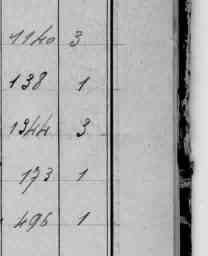 1140 3
138 1
1344 3
173 1
496 1